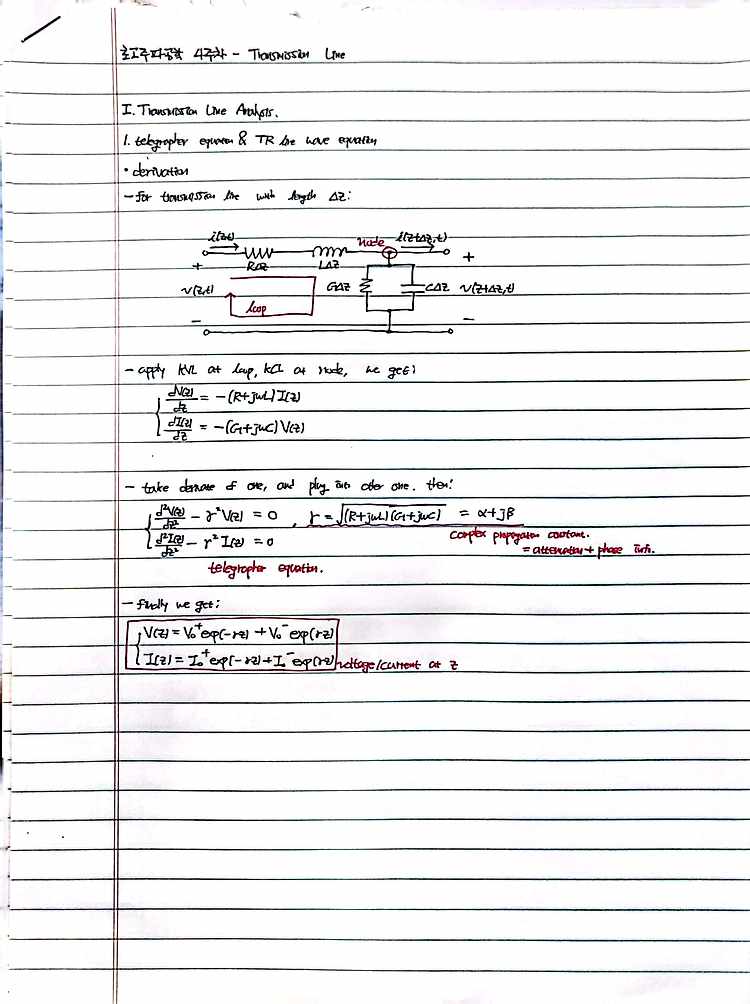 초고주파공학 4주차 - Transmission Line
I. Transmission Line Analysis.
1. telegrapher equation & TR line wave equation
• derivation
- for transmission line with length ΔZ:
i(z,t) node i(z+Δz,t)
+ RΔZ LΔZ +
v(z,t) loop GΔZ CΔZ v(z+Δz,t)
- -
- apply KVL at loop, KCL at node, we get:
dV(z)/dz = -(R+jωL)I(z)
dI(z)/dz = -(G+jωC)V(z)
- take derivate of one, and plug into other one. then:
d²V(z)/dz² - γ²V(z) = 0 , γ = √(R+jωL)(G+jωC) = α+jβ
d²I(z)/dz² - γ²I(z) = 0
complex propagation constant.
= attenuation + phase info.
telegrapher equation.
- finally we get:
V(z) = V₀⁺exp(-γz) + V₀⁻exp(γz)
I(z) = I₀⁺exp(-γz) + I₀⁻exp(γz) voltage/current at z